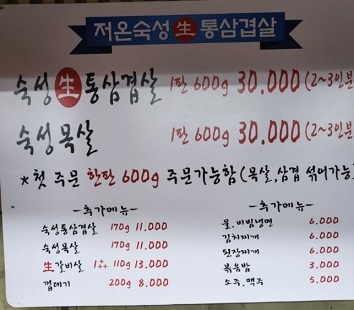 저온숙성 生 통삼겹살
숙성 生 통삼겹살 1판 600g 30.000 (2~3인분
숙성목살 1판 600g 30.000 (2~3인분
*첫 주문 한판 600g 주문가능함 (목살, 삼겹 섞어가능
-추가메뉴-
숙성통삼겹살 170g 11.000
숙성목살 170g 11.000
生갈비살 1++ 110g 13.000
껍데기 200g 8.000
-추가메뉴-
물.비빔냉면 6.000
김치찌개 6.000
된장찌개 6.000
볶음밥 3.000
소주.맥주 5.000